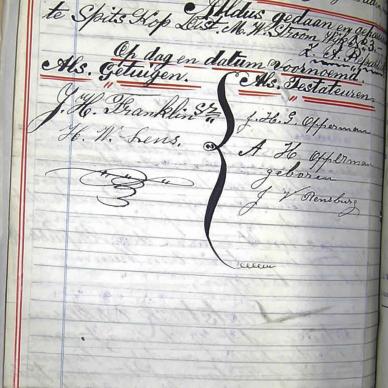 Aldus gedaan en gepasseerd
te Spits Kop Dist. M. W. Stroom
Z. A. Republiek
Op dag en datum voornoemd.
Als. Getuigen.
Als. Testateuren.
J. H. Franklin Sr
H. W. Lens.
J. H. G. Opperman
A H Opperman
geboren
J V Rensburg